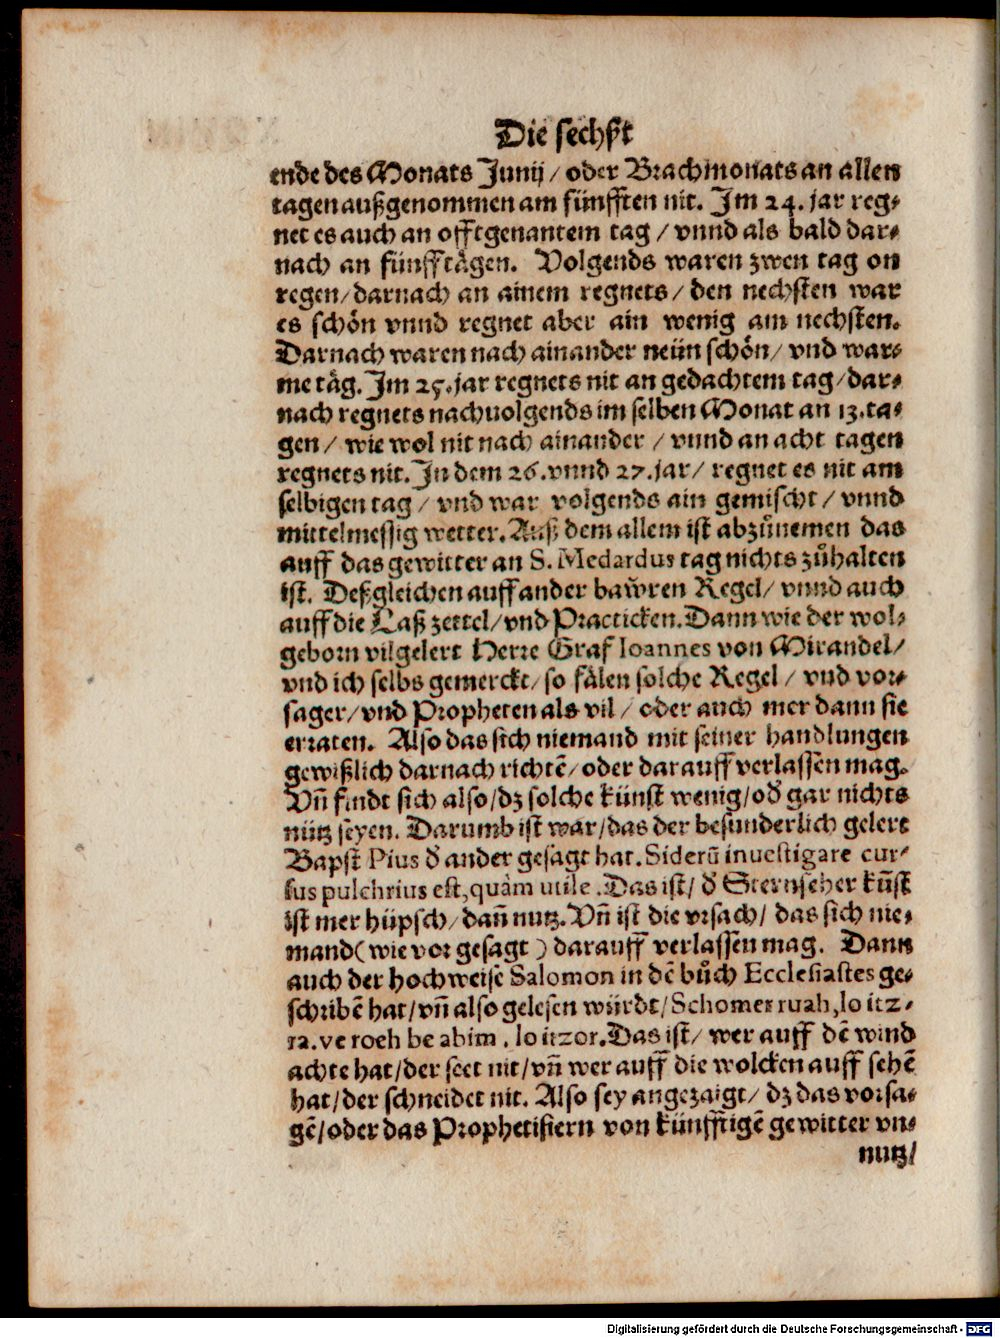 Die sechſt
ende des Monats Junij / oder Brachmonats an allen
tagen außgenommen am fünfften nit. Im 24. jar reg⸗
net es auch an offtgenantem tag / vnnd als bald dar⸗
nach an fünfftägen. Volgends waren zwen tag on
regen / darnach an ainem regnets / den nechſten war
es ſchön vnnd regnet aber ain wenig am nechſten.
Darnach waren nach ainander neün ſchön / vnd war⸗
me täg. Im 25. jar regnets nit an gedachtem tag / dar⸗
nach regnets nachuolgends im ſelben Monat an 13. ta⸗
gen / wie wol nit nach ainander / vnnd an acht tagen
regnets nit. In dem 26. vnnd 27. jar / regnet es nit am
ſelbigen tag / vnd war volgends ain gemiſcht / vnnd
mittelmeſſig wetter. Auß dem allem iſt abzůnemen das
auff das gewitter an S. Medardus tag nichts zůhalten
iſt. Deßgleichen auff ander baẘren Regel / vnnd auch
auff die Laß zettel / vnd Practicken. Dann wie der wol⸗
geborn vilgelert Herre Graf Ioannes von Mirandel /
vnd ich ſelbs gemerckt / ſo fälen ſolche Regel / vnd vor⸗
ſager / vnd Propheten als vil / oder auch mer dann ſie
erraten. Alſo das ſich niemand mit ſeiner handlungen
gewißlich darnach richtē / oder darauff verlaſſen mag.
Vn̄ findt ſich alſo / dz ſolche künſt wenig / oď gar nichts
nütz ſeyen. Darumb iſt war / das der beſunderlich gelert
Bapſt Pius ď ander geſagt hat. Siderū inueſtigare cur⸗
ſus pulchrius eſt, quàm utile. Das iſt / ď Sternſeher kūſt
iſt mer hüpſch / dan̄ nutz. Vn̄ iſt die vrſach / das ſich nie⸗
mand (wie vor geſagt) darauff verlaſſen mag. Dann
auch der hochweiſe Salomon in dē bůch Eccleſiaſtes ge⸗
ſchribē hat / vn̄ alſo geleſen würdt / Schomer ruah, lo itz⸗
ra. ve roeh be abim, lo itzor. Das iſt / wer auff dē wind
achte hat / der ſeet nit / vn̄ wer auff die wolcken auff ſehē
hat / der ſchneidet nit. Alſo ſey angezaigt / dz das vorſa⸗
gē / oder das Prophetiſiern von künfftigē gewitter vn⸗
nutz /
Digitalisierung gefördert durch die Deutsche Forschungsgemeinschaft - DFG